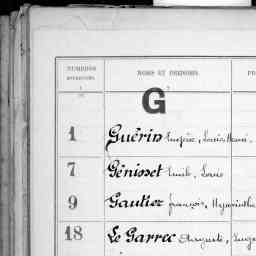 NUMÉROS
NOMS ET PRÉNOMS.
G
1 Guérin Eugène, Louis René,
7 Génisset Emile, Louis
9 Gautier François, Hyacinthe
18 Le Garrec Auguste,